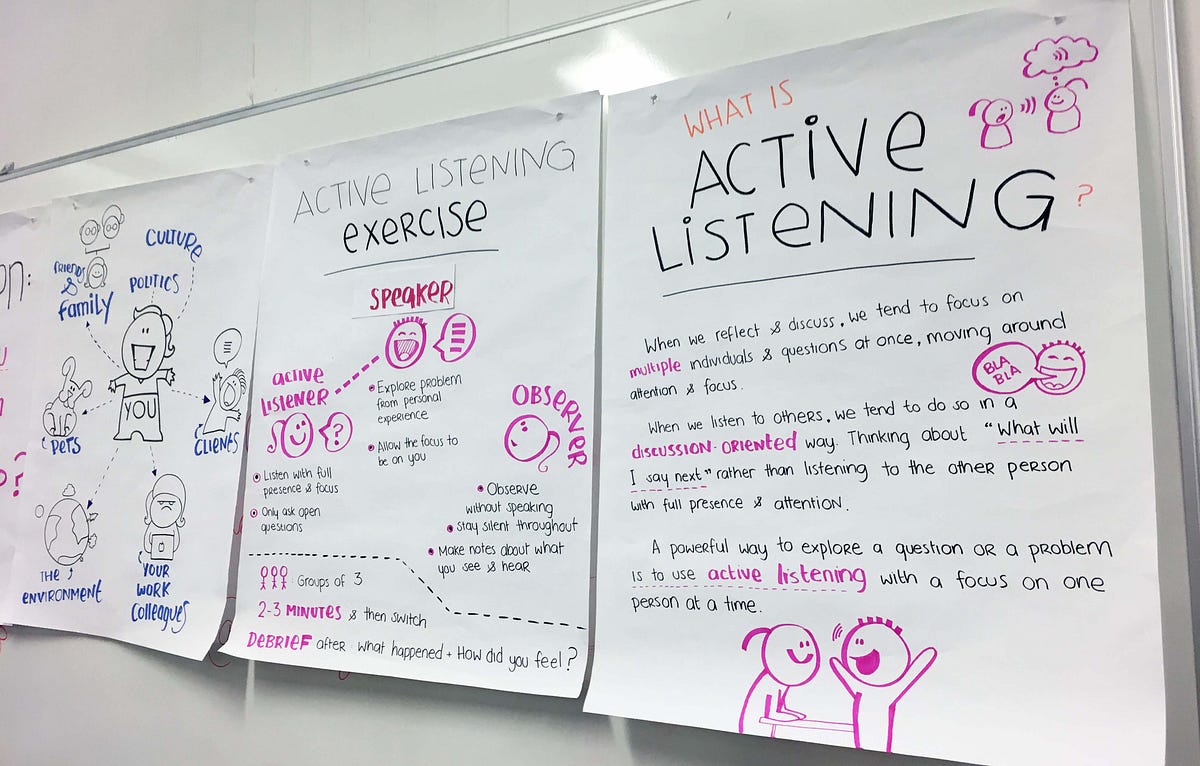 on:
?
CULTURE
FRIENDS
&
family
POLITICS
YOU
PETS
CLIENTS
THE
ENVIRONMENT
YOUR
WORK
COLLEAGUES
ACTIVE LISTENING
EXERCISE
SPEAKER
ACTIVE
LISTENER
?
Explore problem
from personal
experience
Allow the focus to
be on you
OBSERVER
Listen with full
presence & focus
Only ask open
questions
Observe
without speaking
stay silent throughout
Make notes about what
you see & hear
Groups of 3
2-3 MINUTES & then switch
DEBRIEF after: what happened + How did you feel?
WHAT IS
ACTIVE
LISTENING?
When we reflect & discuss, we tend to focus on
multiple individuals & questions at once, moving around
attention & focus.
BLA
BLA
When we listen to others, we tend to do so in a
discussion-oriented way. Thinking about "What will
I say next" rather than listening to the other person
with full presence & attention.
A powerful way to explore a question OR a problem
is to use active listening with a focus on one
person at a time.